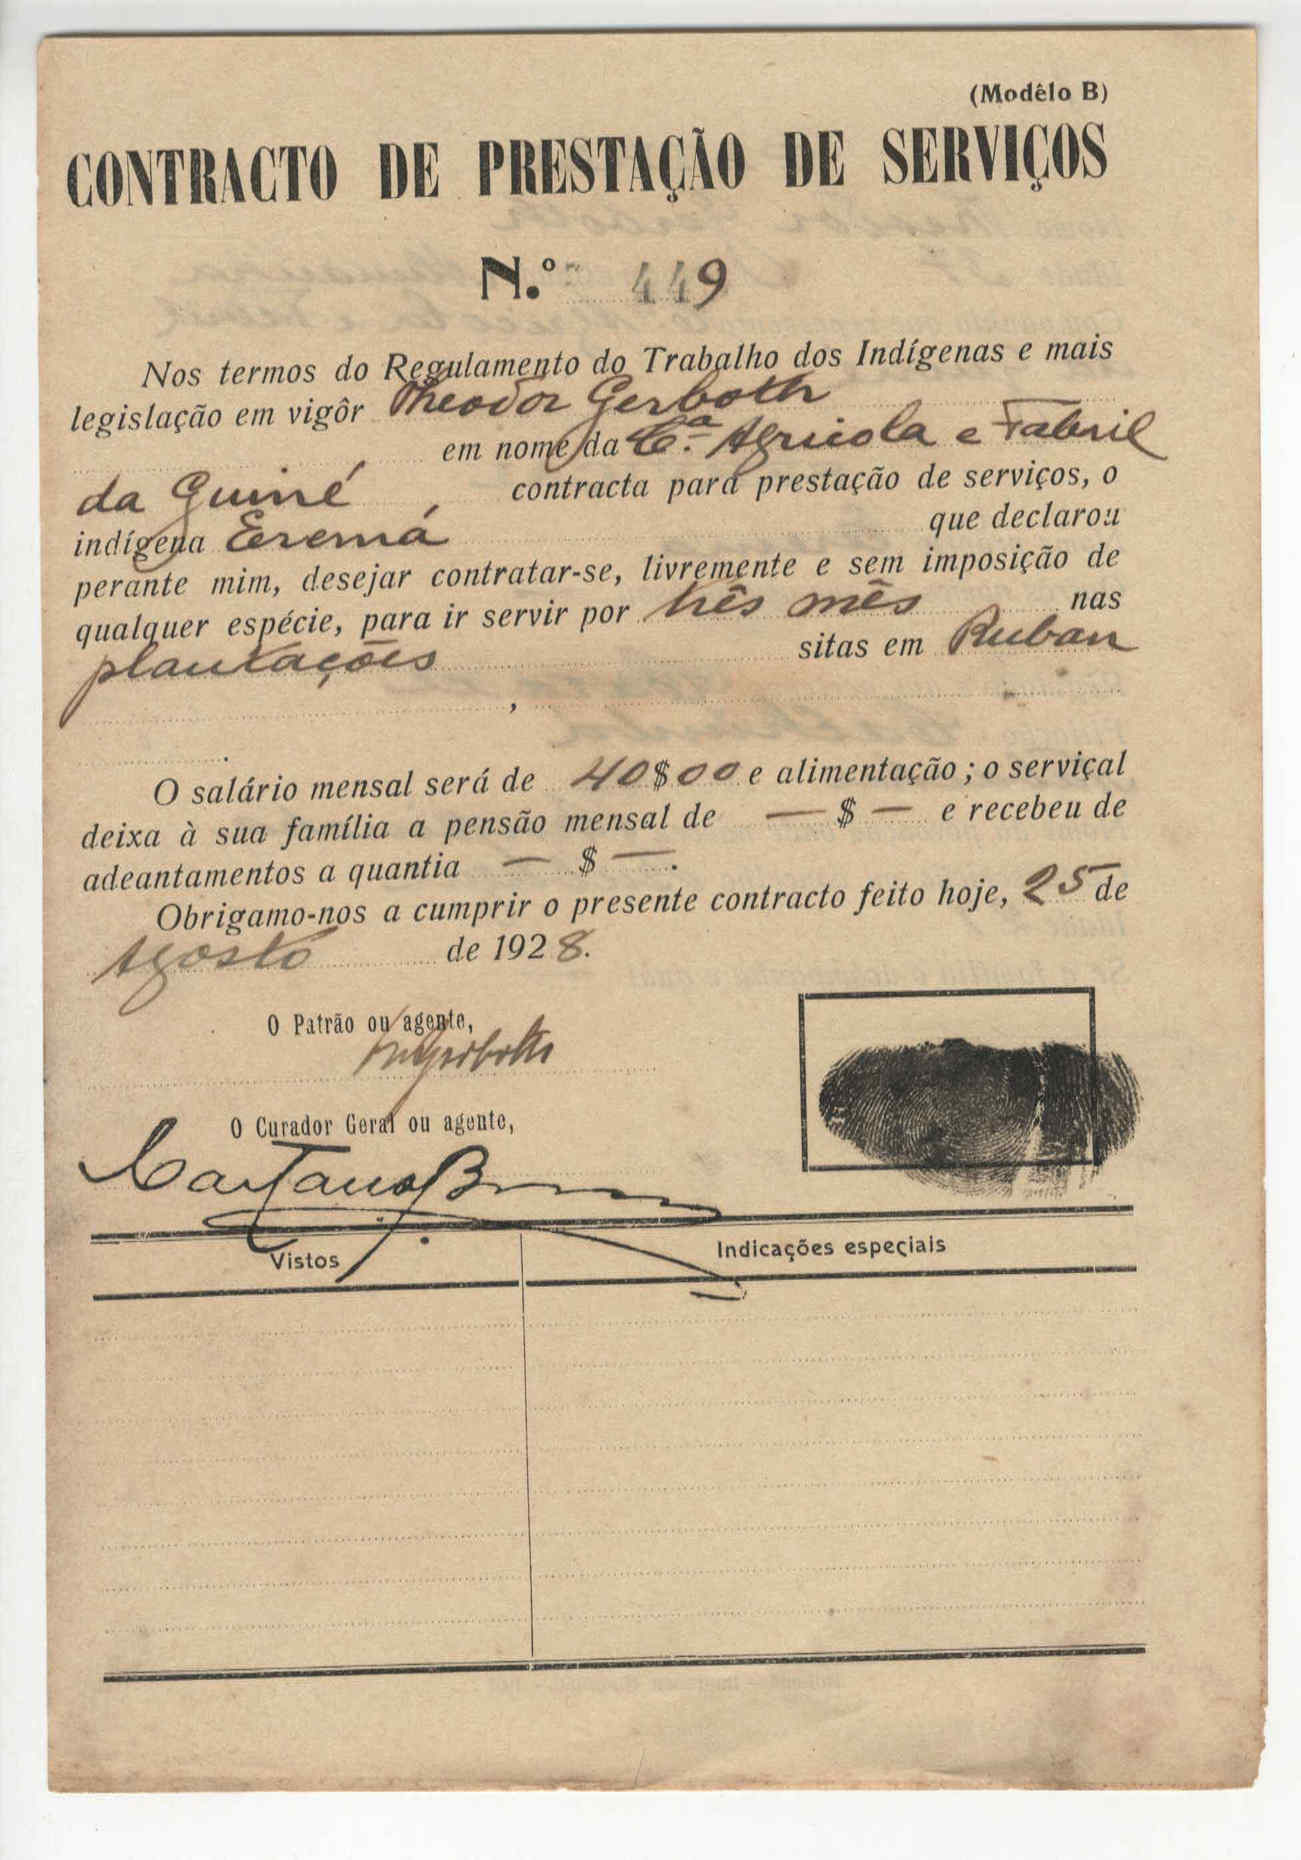 (Modêlo B)
CONTRACTO DE PRESTAÇÃO DE SERVIÇOS
N.º 449
Nos termos do Regulamento do Trabalho dos Indígenas e mais
legislação em vigôr Theodor Gerboth
em nome da Cª. Agricola e Fabril
da Guiné contracta para prestação de serviços, o
indígena Eremá que declarou
perante mim, desejar contratar-se, livremente e sem imposição de
qualquer espécie, para ir servir por três mês nas
plantações sitas em Ruban
,
O salário mensal será de 40$00 e alimentação; o serviçal
deixa à sua família a pensão mensal de — $ — e recebeu de
adeantamentos a quantia — $ —.
Obrigamo-nos a cumprir o presente contracto feito hoje, 25 de
Agosto de 1928.
O Patrão ou agente,
Gerboth
O Curador Geral ou agente,
Caetano B
Vistos
Indicações especiais